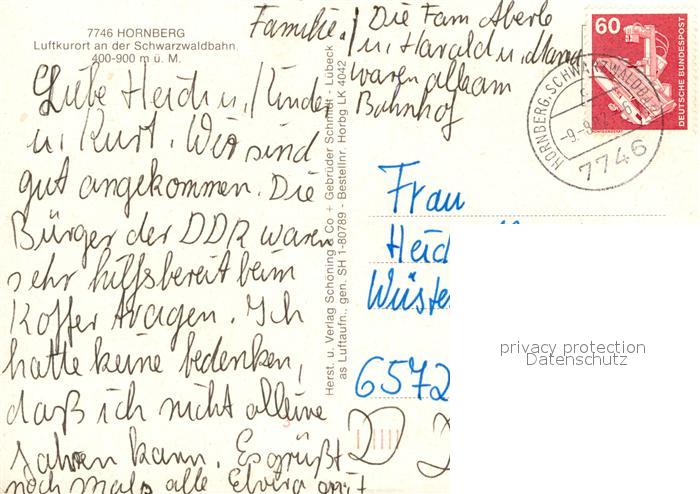 7746 HORNBERG
Luftkurort an der Schwarzwaldbahn
400-900 m ü. M.
Liebe Heidi u. Kinder
u. Kurt. Wir sind
gut angekommen. Die
Bürger der DDR waren
sehr hilfsbereit beim
Koffer tragen. Ich
hatte keine bedenken,
daß ich nicht alleine
fahren kann. Es grüßt
noch mals alle Elvira mit
Familie. / Die Fam Aberle
u. Harald u.
waren alle am
Bahnhof
Herst. u. Verlag Schöning & Co + Gebrüder Schmidt - Lübeck
as Luftaufn., gen. SH 1-80789 - Bestellnr. Horbg LK 4042
60
DEUTSCHE BUNDESPOST
HORNBERG, SCHWARZWALDBAHN
7746
Frau
Heid
Wüste
6572
privacy protection
Datenschutz